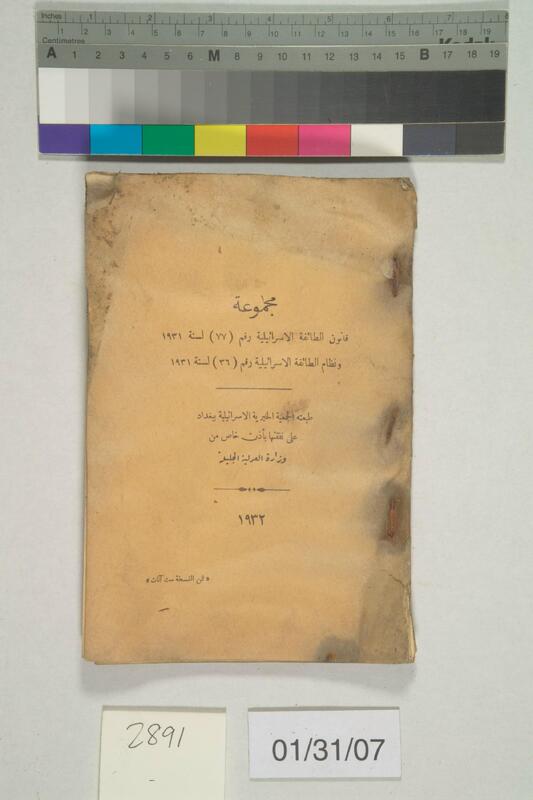 Inches 1 2 3 4 5 6 7 8
Centimetres 1 2 3 4 5 6 7 8 9 10 11 12 13 14 15 16 17 18 19
Kodak
A 1 2 3 4 5 6 M 8 9 10 11 12 13 14 15 B 17 18 19
مجموعة
قانون الطائفة الاسرائيلية رقم (٧٧) لسنة ١٩٣١
ونظام الطائفة الاسرائيلية رقم (٣٦) لسنة ١٩٣١
طبعته الجمعية الخيرية الاسرائيلية ببغداد
على نفقتها بأذن خاص من
وزارة العدلية الجليلة
١٩٣٢
« ثمن النسخة ست آنات »
2891
01/31/07